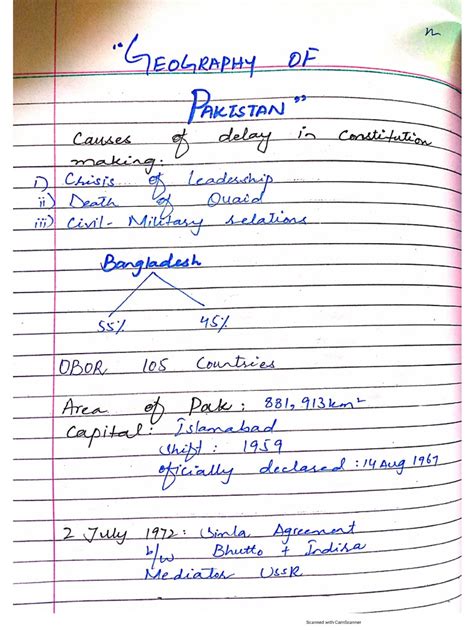 "GEOGRAPHY OF
PAKISTAN"
Causes of delay in Constitution
making.
i) Crisis of Leadership
ii) Death of Quaid
iii) Civil-Military relations
Bangladesh
55% 45%
OBOR 105 Countries
Area of Pak: 881,913 km²
Capital: Islamabad
shift: 1959
officially declared: 14 Aug 1967
2 July 1972: Simla Agreement
b/w Bhutto + Indira
Mediator USSR
Scanned with CamScanner